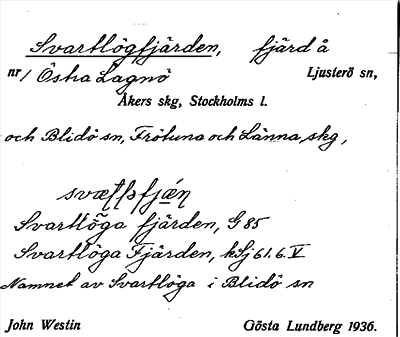 Svartlögfjärden, fjärd å
nr 1 Östra Lagnö Ljusterö sn,
Åkers skg, Stockholms l.
och Blidö sn, Frötuna och Länna skg,
Svartlöga fjärden, G 85
Svartlöga Fjärden, kSj 61.6.V
Namnet av Svartlöga i Blidö sn
John Westin Gösta Lundberg 1936.